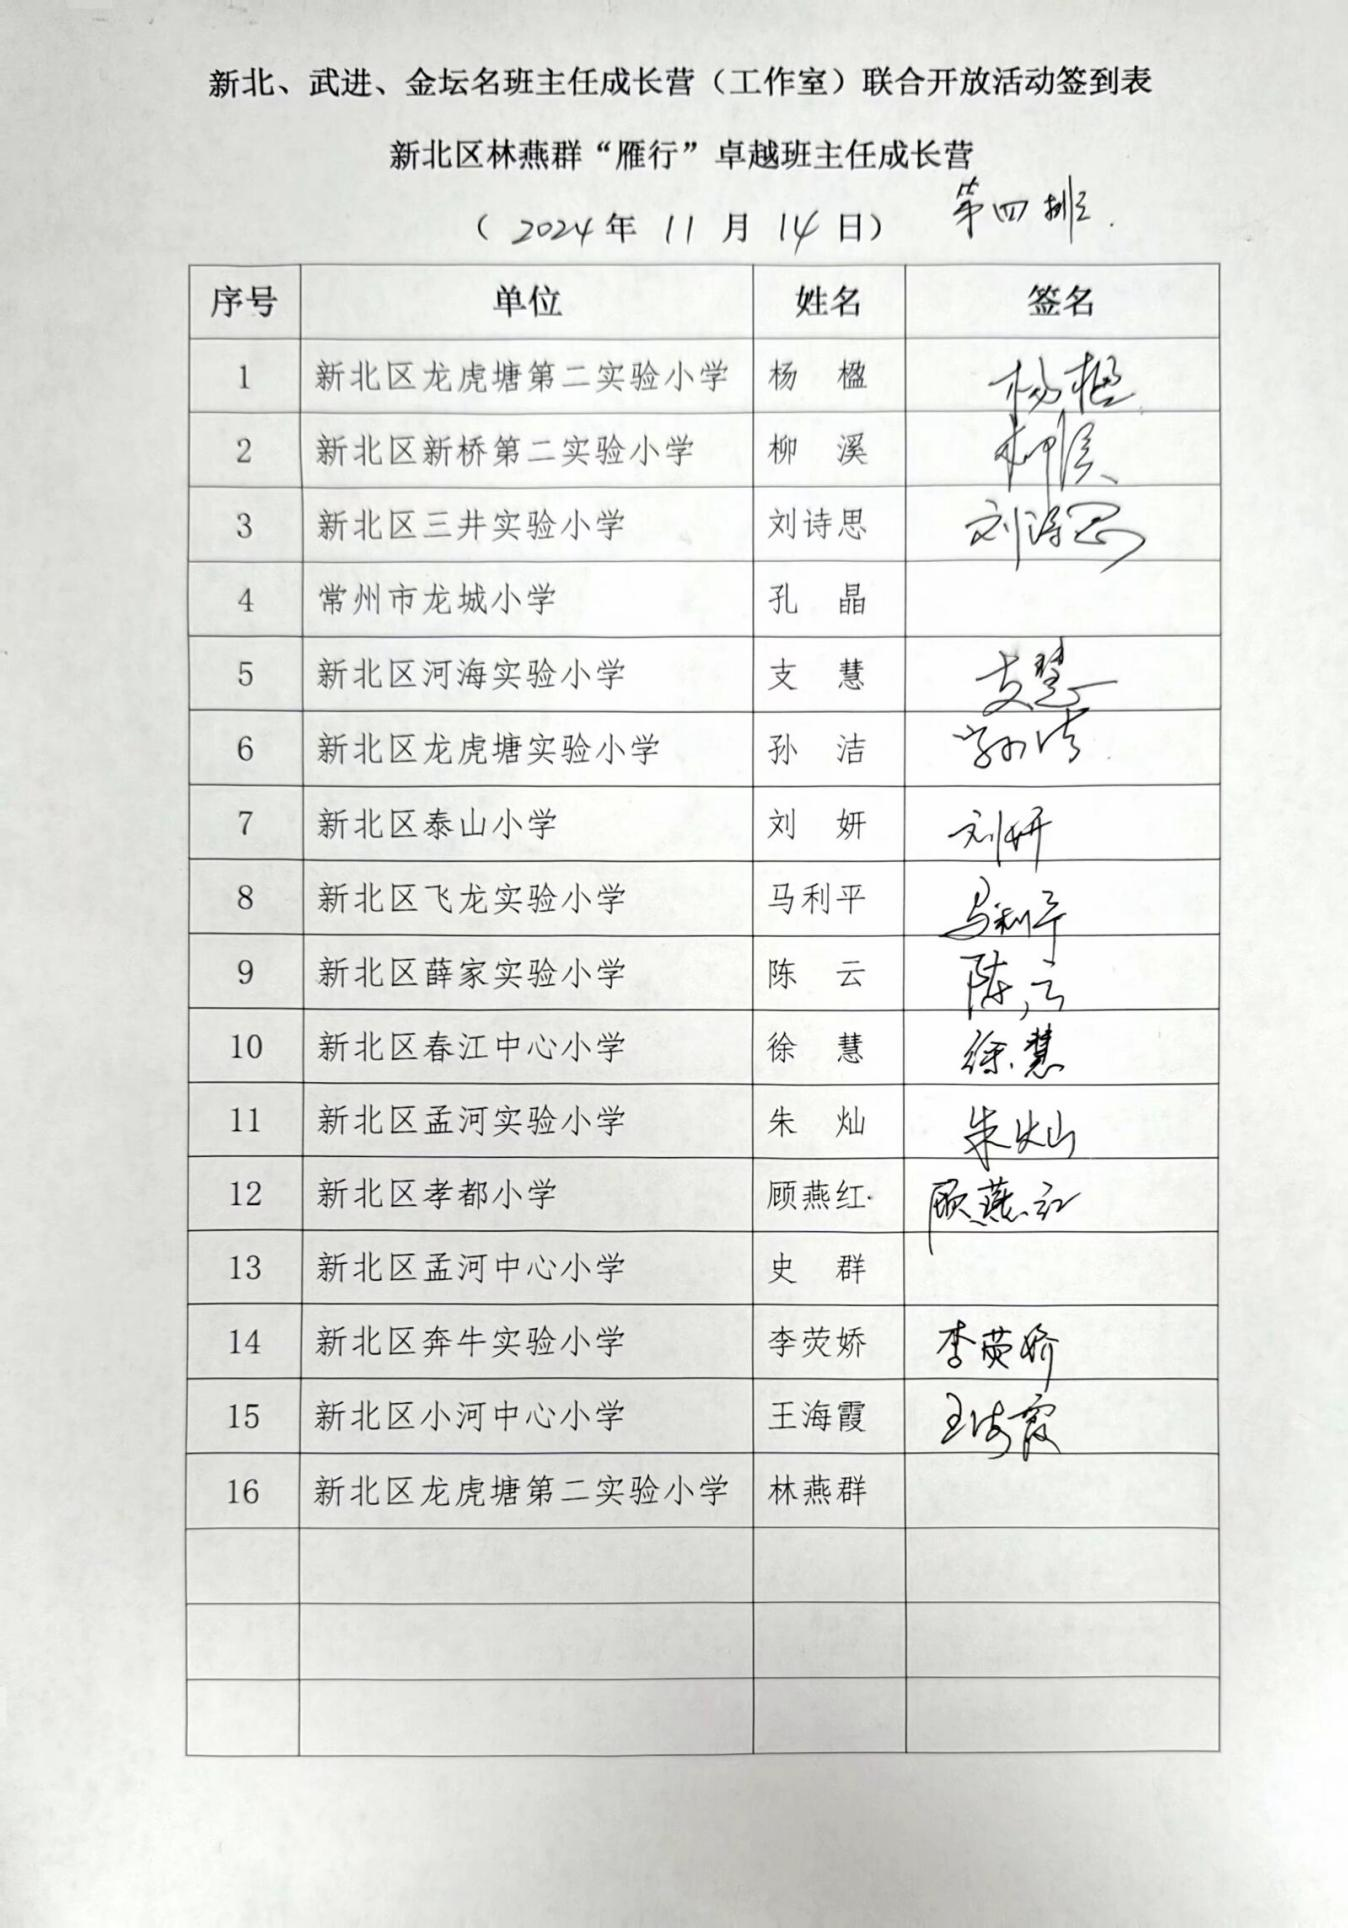 新北、武进、金坛名班主任成长营（工作室）联合开放活动签到表
新北区林燕群“雁行”卓越班主任成长营
（2024年 11月 14日） 第四排.
序号 单位 姓名 签名
1 新北区龙虎塘第二实验小学 杨 楹 杨楹
2 新北区新桥第二实验小学 柳 溪 柳溪
3 新北区三井实验小学 刘诗思 刘诗思
4 常州市龙城小学 孔 晶
5 新北区河海实验小学 支 慧 支慧
6 新北区龙虎塘实验小学 孙 洁 孙洁
7 新北区泰山小学 刘 妍 刘妍
8 新北区飞龙实验小学 马利平 马利平
9 新北区薛家实验小学 陈 云 陈云
10 新北区春江中心小学 徐 慧 徐慧
11 新北区孟河实验小学 朱 灿 朱灿
12 新北区孝都小学 顾燕红 顾燕红
13 新北区孟河中心小学 史 群
14 新北区奔牛实验小学 李荧娇 李荧娇
15 新北区小河中心小学 王海霞 王海霞
16 新北区龙虎塘第二实验小学 林燕群